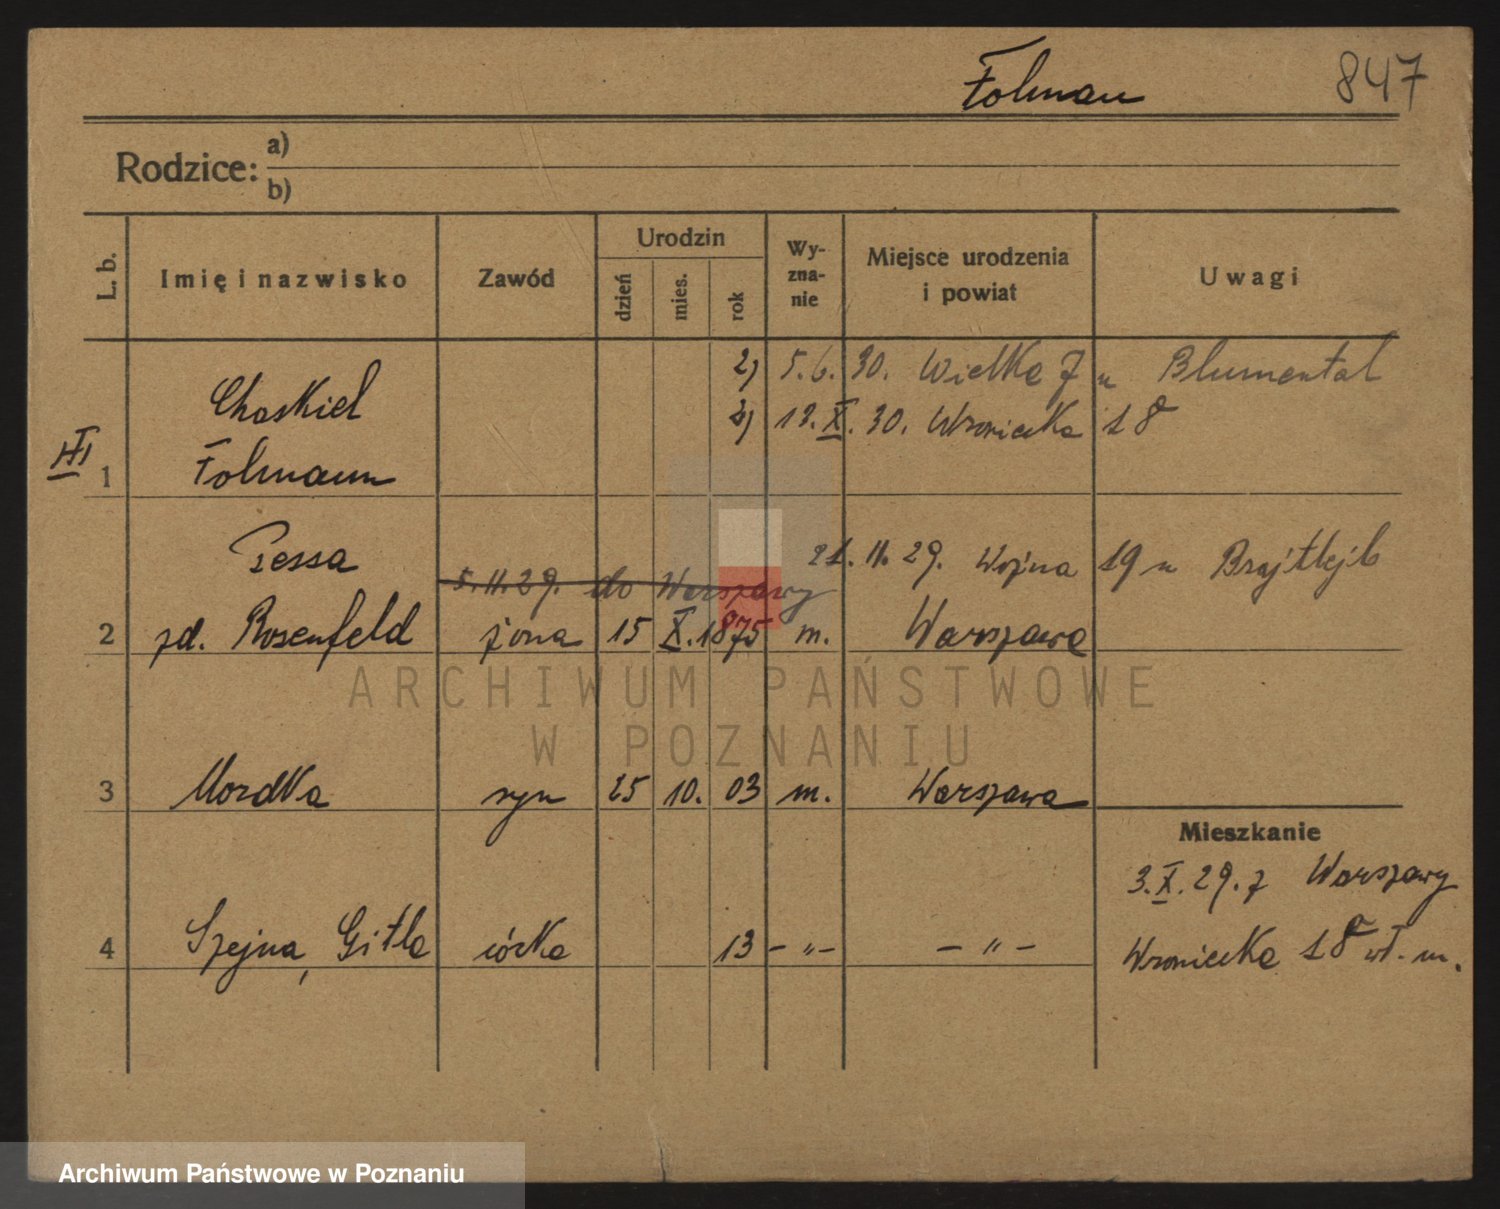 Folman 847
Rodzice: a)
b)
L. b. Imię i nazwisko Zawód Urodzin Wy-zna-nie Miejsce urodzenia i powiat Uwagi
dzień mies. rok
2) 5.6.30. Wielka 7 u Blumental
Chaskiel
2) 12.X.30. Wroniecka 18
III 1 Folmann
21.11.29. Wojna 19 u Brajtlejb
Pessa
5.11.29. do Warszawy
2 zd. Rosenfeld żona 15 X. 1875 m. Warszawa
ARCHIWUM PAŃSTWOWE
W POZNANIU
3 Mordka syn 25 10. 03 m. Warszawa
Mieszkanie
3.X.29. z Warszawy
4 Szejna, Gitla córka 13 – „ – – „ –
Wroniecka 18 wł. m.
Archiwum Państwowe w Poznaniu